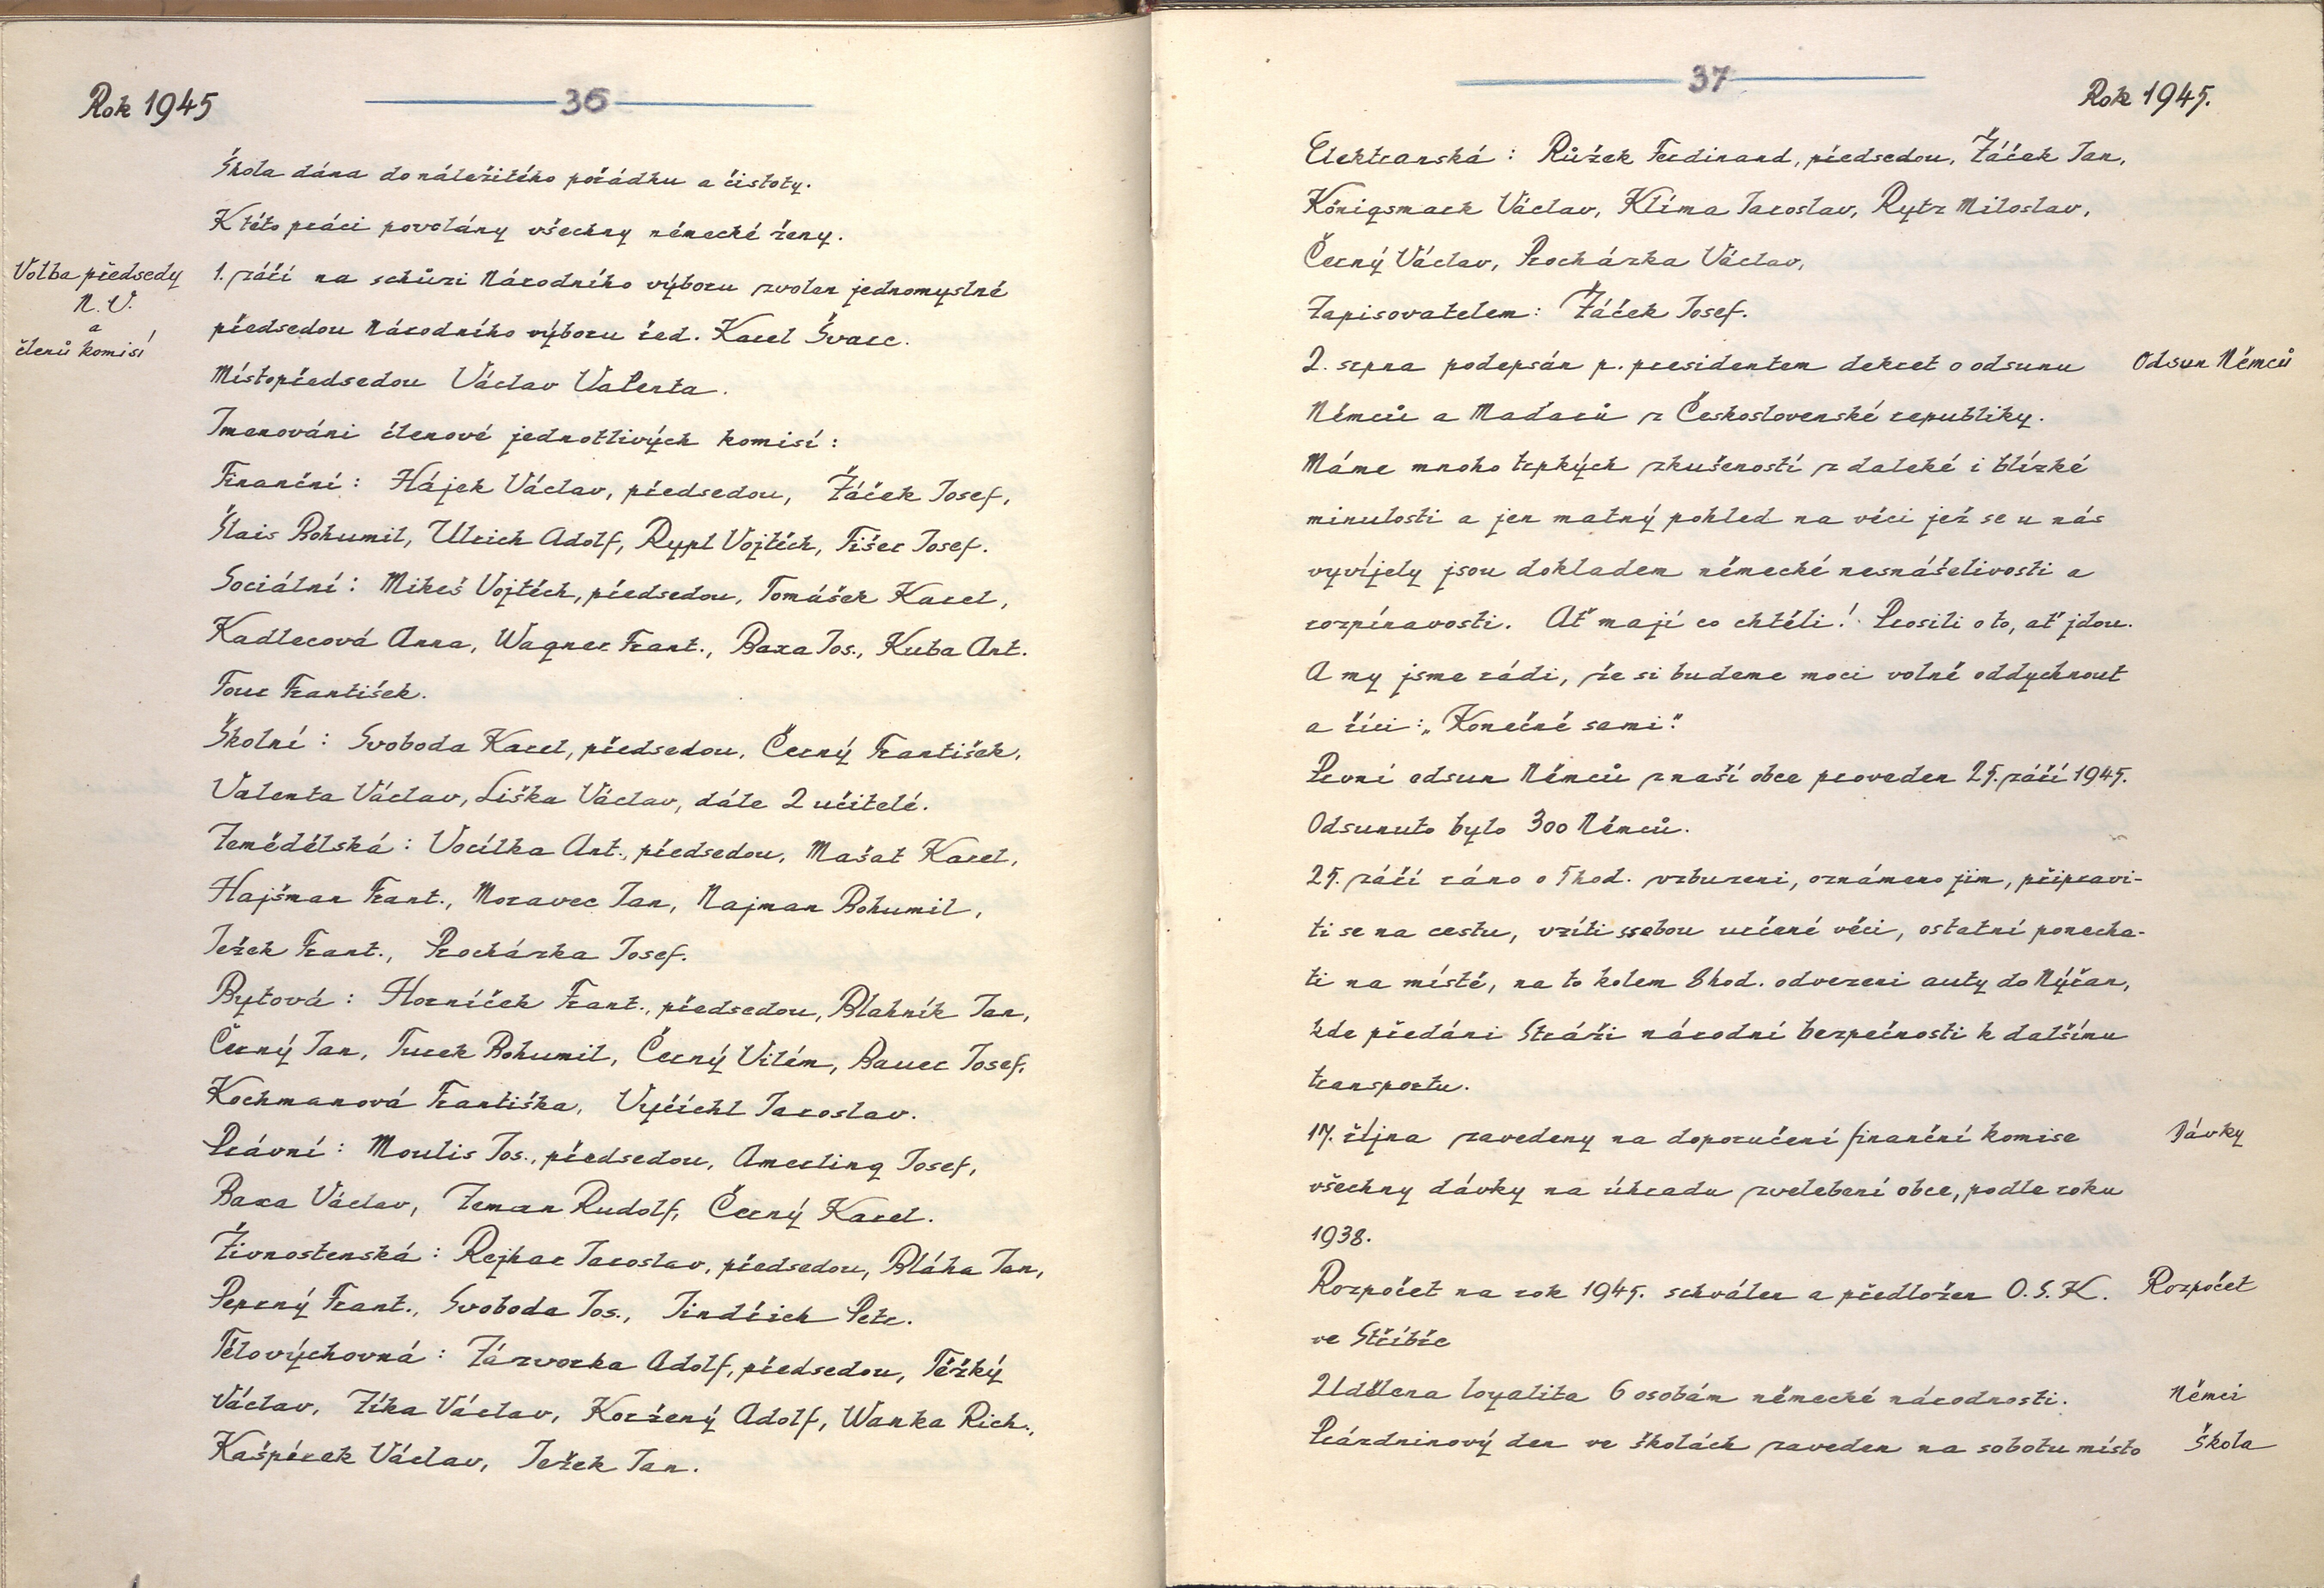 Rok 1945
36
Škola dána do náležitého pořádku a čistoty.
K této práci povolány všechny německé ženy.
Volba předsedy
N. V.
a
členů komisí
1. září na schůzi Národního výboru zvolen jednomyslně
předsedou Národního výboru řed. Karel Švarc.
Místopředsedou Václav Valenta.
Jmenováni členové jednotlivých komisí:
Finanční: Hájek Václav, předsedou, Žáček Josef,
Šlais Bohumil, Ulrich Adolf, Rypl Vojtěch, Fišer Josef.
Sociální: Mikeš Vojtěch, předsedou, Tomášek Karel,
Kadlecová Anna, Wagner Frant., Baxa Jos., Kuba Ant.
Four František.
Školní: Svoboda Karel, předsedou, Černý František,
Valenta Václav, Liška Václav, dále 2 učitelé.
Zemědělská: Vocílka Ant., předsedou, Mašat Karel,
Hajšman Frant., Moravec Jan, Najman Bohumil,
Ježek Frant., Procházka Josef.
Bytová: Horníček Frant., předsedou, Blahník Jan,
Černý Jan, Turek Bohumil, Černý Vilém, Bauer Josef,
Kochmanová Františka, Vyčichl Jaroslav.
Právní: Moulis Jos., předsedou, Amerling Josef,
Baxa Václav, Zeman Rudolf, Černý Karel.
Živnostenská: Rejhar Jaroslav, předsedou, Bláha Jan,
Peprný Frant., Svoboda Jos., Jindřich Petr.
Tělovýchovná: Zázvorka Adolf, předsedou, Těžký
Václav, Zíka Václav, Kožený Adolf, Wanka Rich.,
Kašpárek Václav, Ježek Jan.
37
Rok 1945.
Elektranská: Růžek Ferdinand, předsedou, Žáček Jan,
Königsmark Václav, Klíma Jaroslav, Rytz Miloslav,
Černý Václav, Procházka Václav,
Zapisovatelem: Žáček Josef.
2. srpna podepsán p. presidentem dekret o odsunu
Odsun Němců
Němců a Maďarů z Československé republiky.
Máme mnoho trpkých zkušeností z daleké i blízké
minulosti a jen matný pohled na věci jež se u nás
vyvíjely jsou dokladem německé nesnášelivosti a
rozpínavosti. Ať mají co chtěli! Prosili o to, ať jdou.
A my jsme rádi, že si budeme moci volně oddychnout
a říci: „Konečně sami".
První odsun Němců z naší obce proveden 25. září 1945.
Odsunuto bylo 300 Němců.
25. září ráno o 5 hod. vzbuzeni, oznámeno jim, připravi-
ti se na cestu, vzíti ssebou určené věci, ostatní ponecha-
ti na místě, na to kolem 8 hod. odvezeni auty do Nýřan,
kde předáni Stráži národní bezpečnosti k dalšímu
transportu.
17. října zavedeny na doporučení finanční komise
Dávky
všechny dávky na úhradu zvelebení obce, podle roku
1938.
Rozpočet na rok 1945. schválen a předložen O. S. K.
Rozpočet
ve Stříbře
Udělena loyalita 6 osobám německé národnosti.
Němci
Prázdninový den ve školách zaveden na sobotu místo
Škola